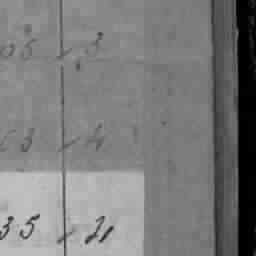 05 - 3
63 - 4
35 - 21